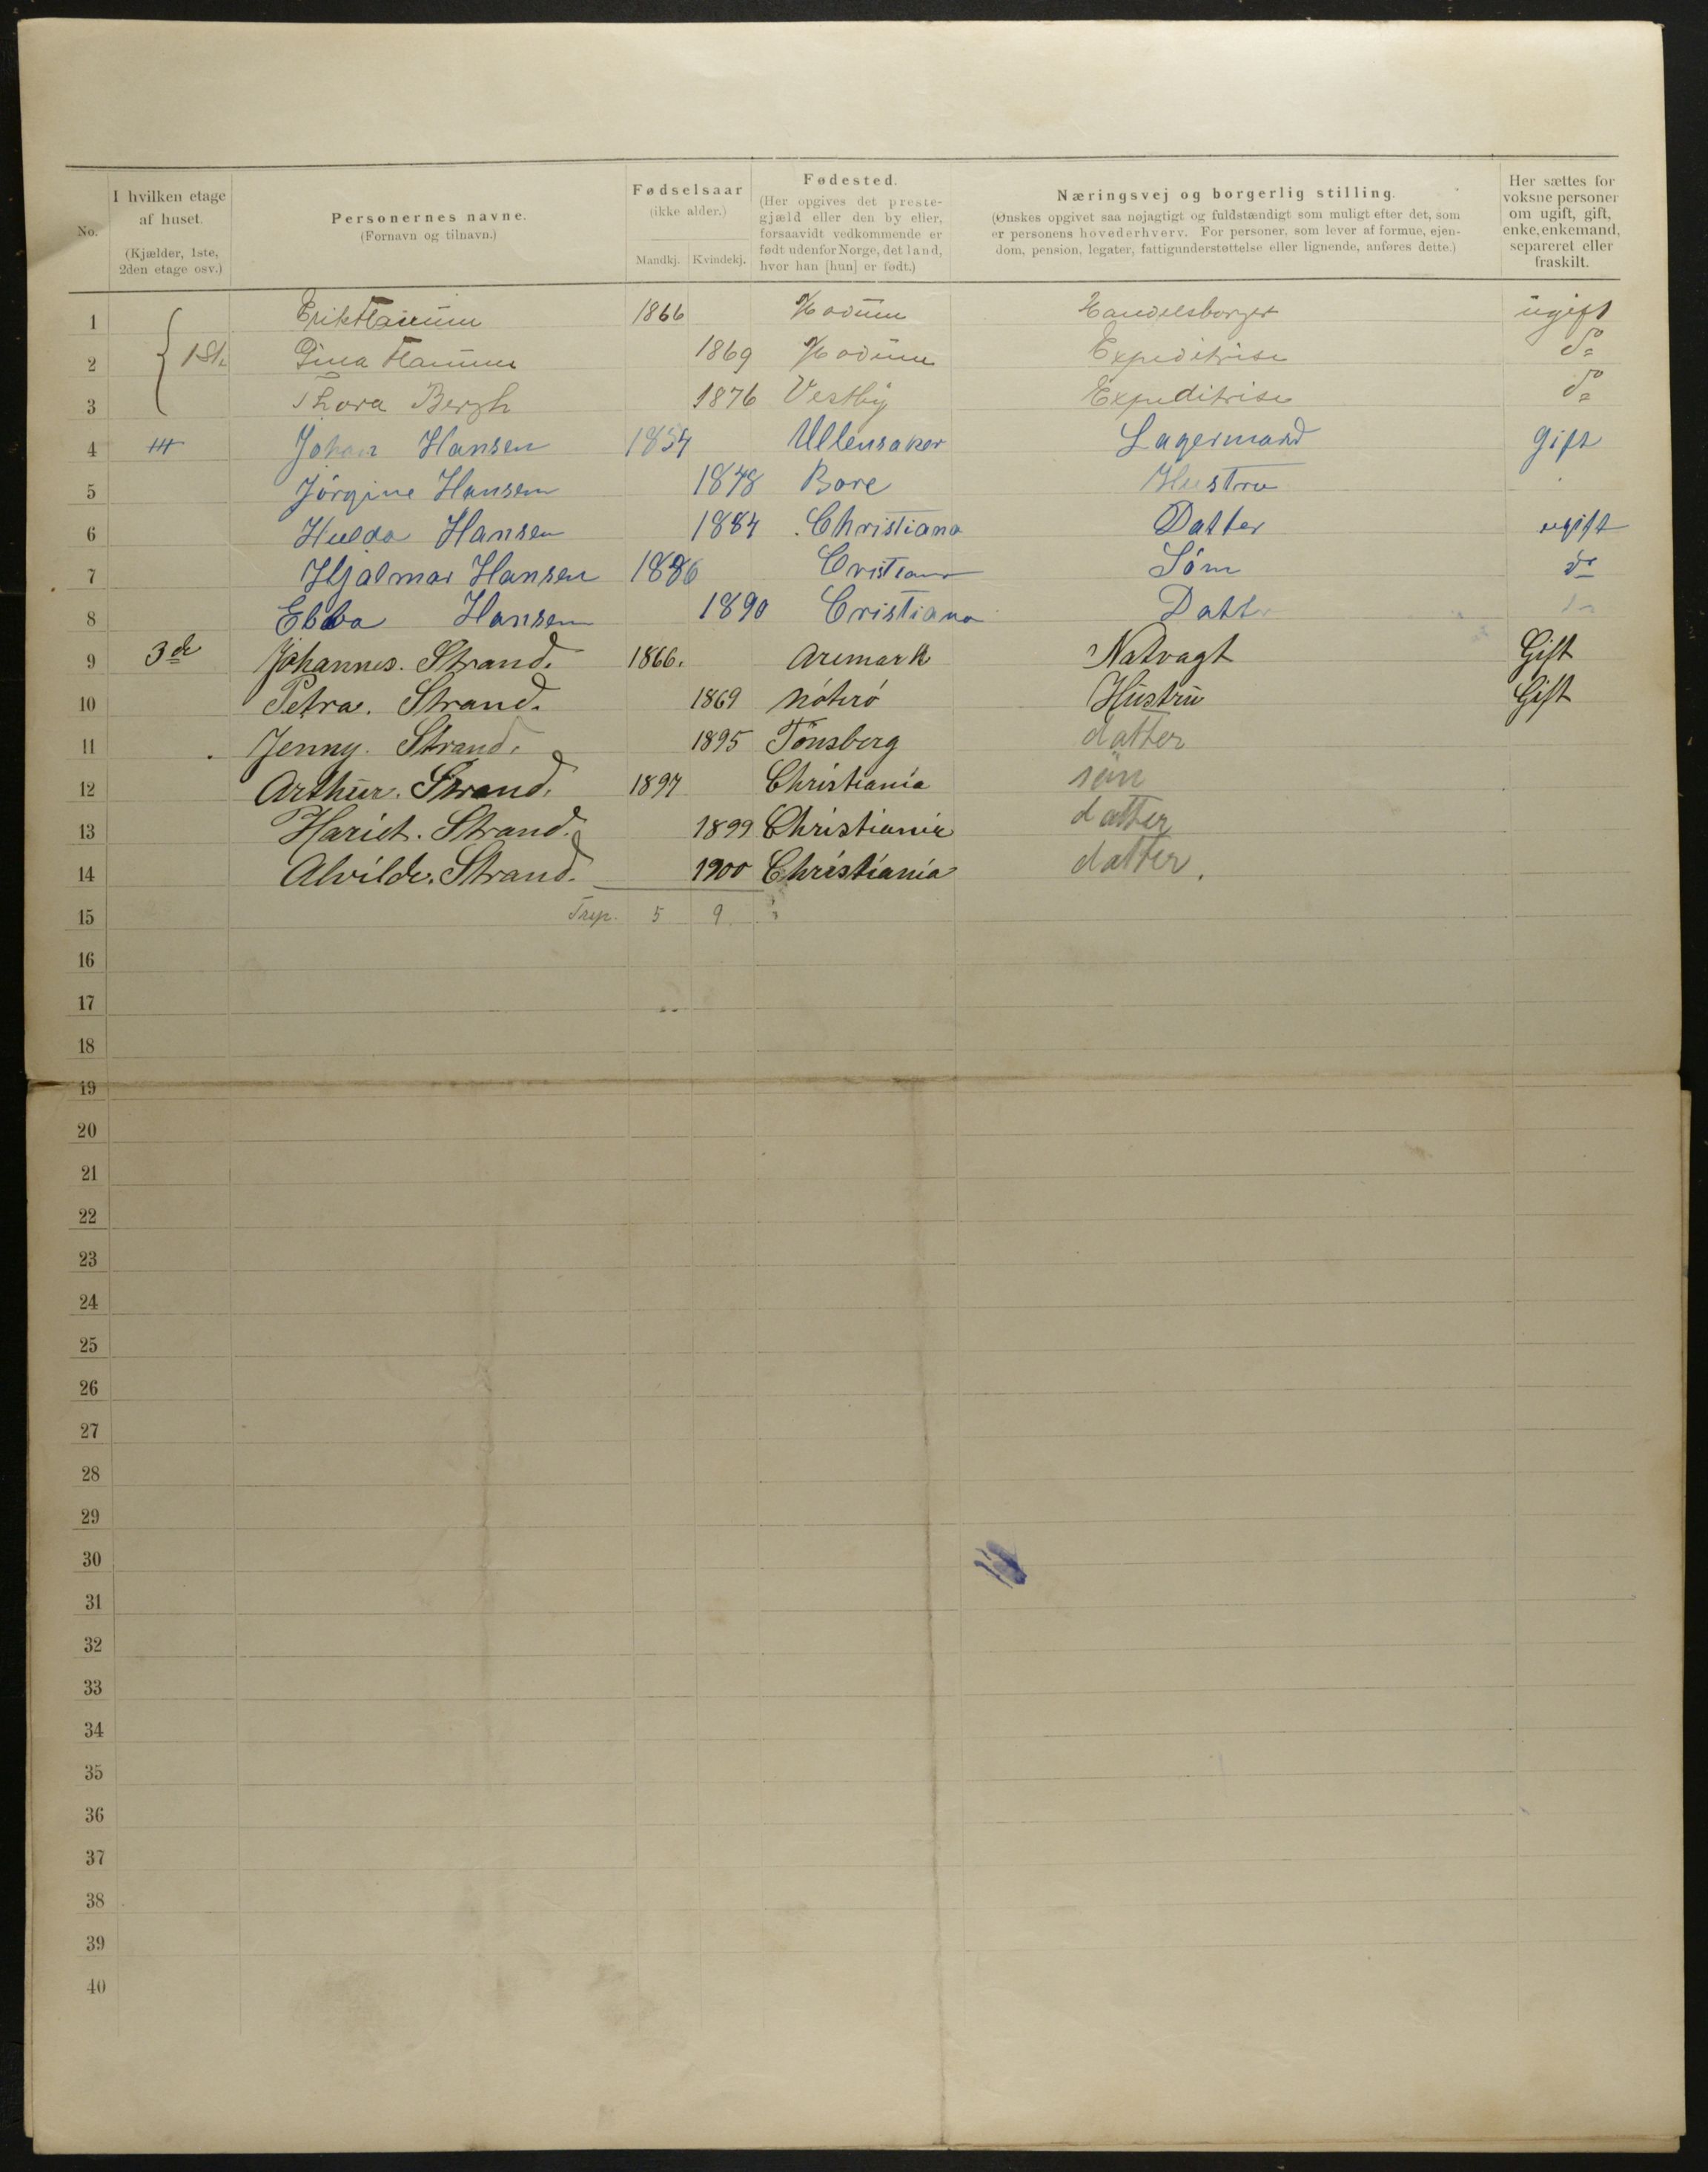 No.
I hvilken etage af huset. (Kjælder, 1ste, 2den etage osv.)
Personernes navne. (Fornavn og tilnavn.)
Fødselsaar (ikke alder.) Mandkj. Kvindekj.
Fødested. (Her opgives det prestegjæld eller den by eller, forsaavidt vedkommende er født udenfor Norge, det land, hvor han [hun] er født.)
Næringsvej og borgerlig stilling. (Ønskes opgivet saa nøjagtigt og fuldstændigt som muligt efter det, som er personens hovederhverv. For personer, som lever af formue, ejendom, pension, legater, fattigunderstøttelse eller lignende, anføres dette.)
Her sættes for voksne personer om ugift, gift, enke, enkemand, separeret eller fraskilt.
1 Erik 1866 Modum Handelsborger ugift
2 1ste Gina 1869 Modum Expeditrise do
3 Thora Bergh 1876 Vestby Expeditrise do
4 Johan Hansen 1854 Ullensaker Lagermand gift
5 Jörgine Hansen 1848 Bore Hustru
6 Hulda Hansen 1884 Christiana Datter ugift
7 Hjalmar Hansen 1886 Cristiana Sön do
8 Ebba Hansen 1890 Cristiana Datter
9 3de Johannes. Strand. 1866. Aremark Natvagt Gift
10 Petra. Strand. 1869 Nóteró Hustru Gift
11 Jenny. Strand. 1895 Tönsberg datter
12 Arthur. Strand. 1897 Christiania sön
13 Hariet. Strand. 1899 Christiania datter
14 Alvilde. Strand. 1900 Christiania datter.
15 5 9
16
17
18
19
20
21
22
23
24
25
26
27
28
29
30
31
32
33
34
35
36
37
38
39
40